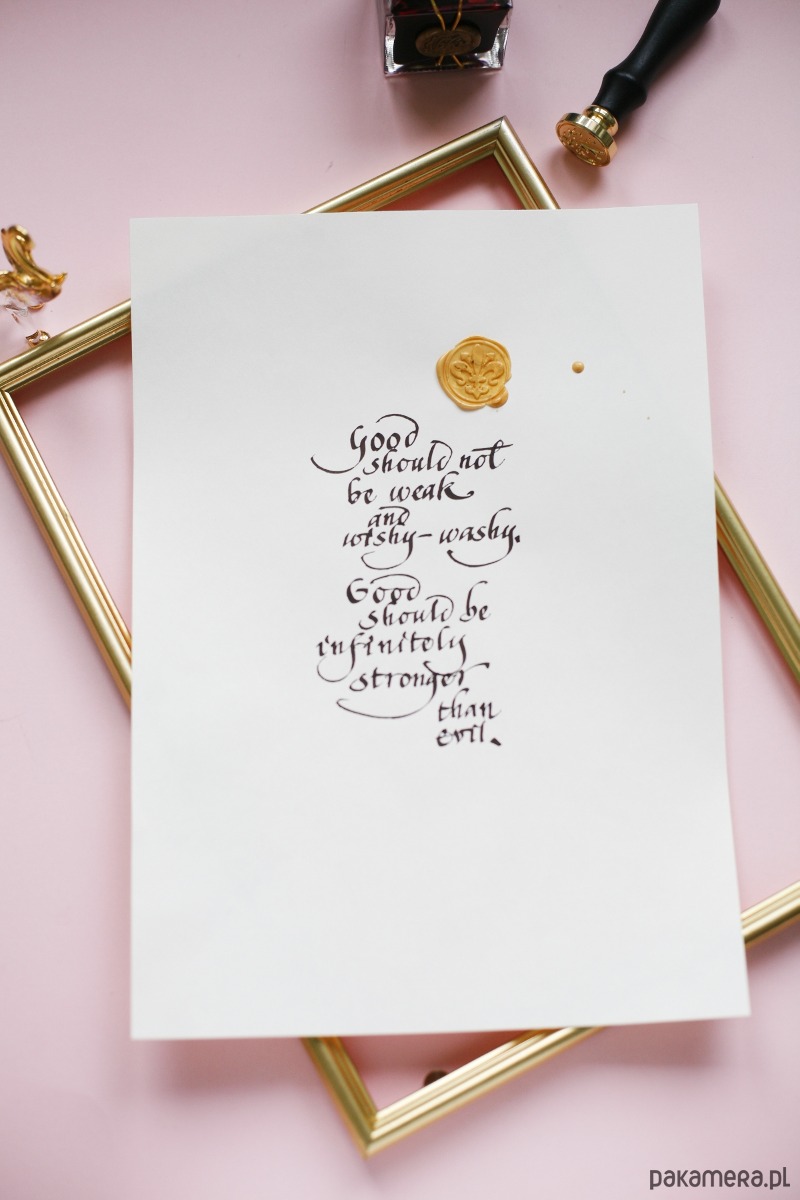 Good
should not
be weak
and
wishy-washy.
Good
should be
infinitely
stronger
than
evil.
pakamera.pl